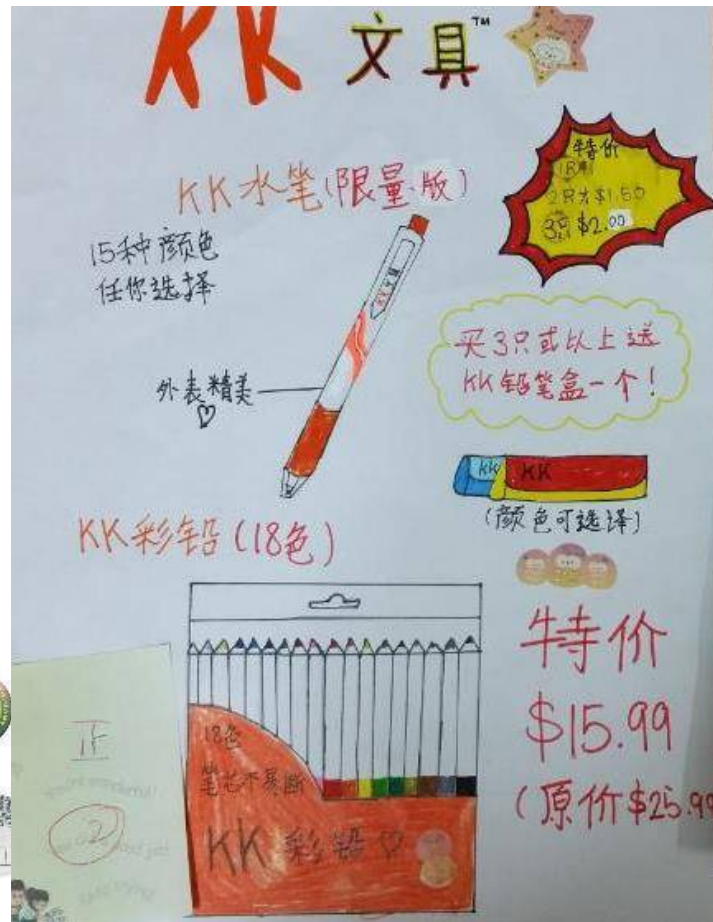 KK 文具™
KK水笔(限量版)
特价
2只为$1.50
3只$2.00
15种颜色
任你选择
外表精美
买3只或以上送
KK铅笔盒一个!
KK KK
(颜色可选译)
KK彩铅(18色)
特价
$15.99
(原价$25.99
18色
笔芯不易断
KK 彩铅
正
2